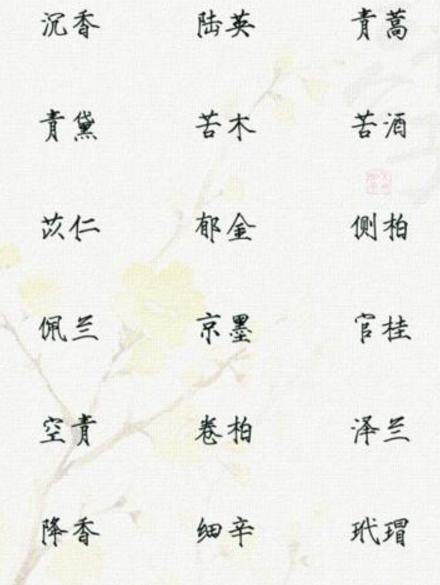 沉香 陆英 青蒿
青黛 苦木 苦酒
苡仁 郁金 侧柏
佩兰 京墨 官桂
空青 卷柏 泽兰
降香 细辛 玳瑁